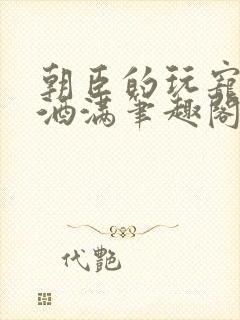 朝臣的玩宠
酒满笔趣阁
代艳